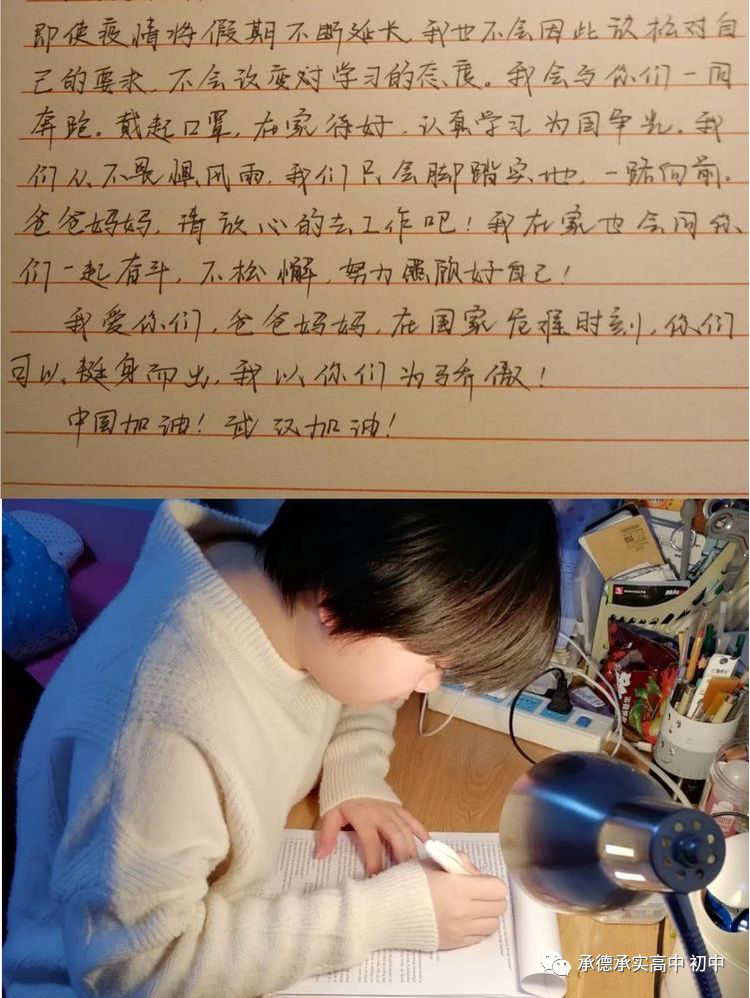 即使疫情将假期不断延长，我也不会因此放松对自
己的要求，不会改变对学习的态度。我会与你们一同
奔跑。戴起口罩，在家待好，认真学习为国争光。我
们从不畏惧风雨，我们只会脚踏实地，一路向前。
爸爸妈妈，请放心的去工作吧！我在家也会同你
们一起奋斗，不松懈，努力照顾好自己！
我爱你们，爸爸妈妈，在国家危难时刻，你们
可以挺身而出，我以你们为骄傲！
中国加油！武汉加油！
承德承实高中初中